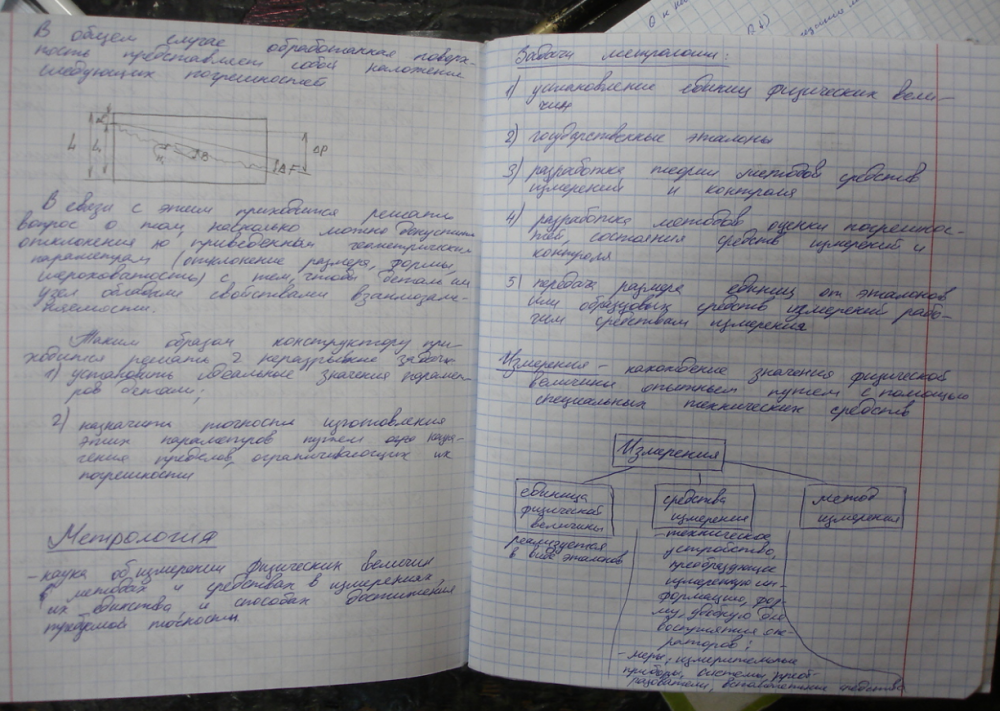 В общем случае обработанная поверх-
ность представляет собой наложение
следующих погрешностей
L
ΔP
ΔF
В связи с этим приходится решать
вопрос о том, насколько можно допустить
отклонения по приведенным геометрическим
параметрам (отклонение размера, формы,
шероховатости) с тем, чтобы детали и
узел обладали свойствами взаимозаме-
няемости.
Таким образом конструктору при-
ходится решать 2 неразрывные задачи
1) установить идеальное значения парамет-
ров детали;
2) назначить точность изготовления
этих параметров путем назна-
чения пределов, ограничивающих их
погрешности
Метрология
- наука об измерении физических величин,
методах и средствах в измерениях,
их единства, и способах достижения
требуемой точности
Задачи метрологии:
1) установление единиц физических вели-
чин
2) государственные эталоны
3) разработка теории методов средств
измерения и контроля
4) разработка методов оценки погрешнос-
тей, состояния средств измерений и
контроля
5) передача размера единиц от эталонов
или образцовых средств измерений рабо-
чим средствам измерения
Измерения - нахождение значения физической
величины опытным путем с помощью
специальных технических средств
Измерения
единица
физической
величины
реализуется
в виде эталонов
средства
измерении
- техническое
устройство,
преобразующие
измеряемую ин-
формацию, фор-
му, удобную для
восприятия опе-
раторов;
- меры, измерительные
приборы, системы, преоб-
разователи, вспомогательные средства
метод
измерения